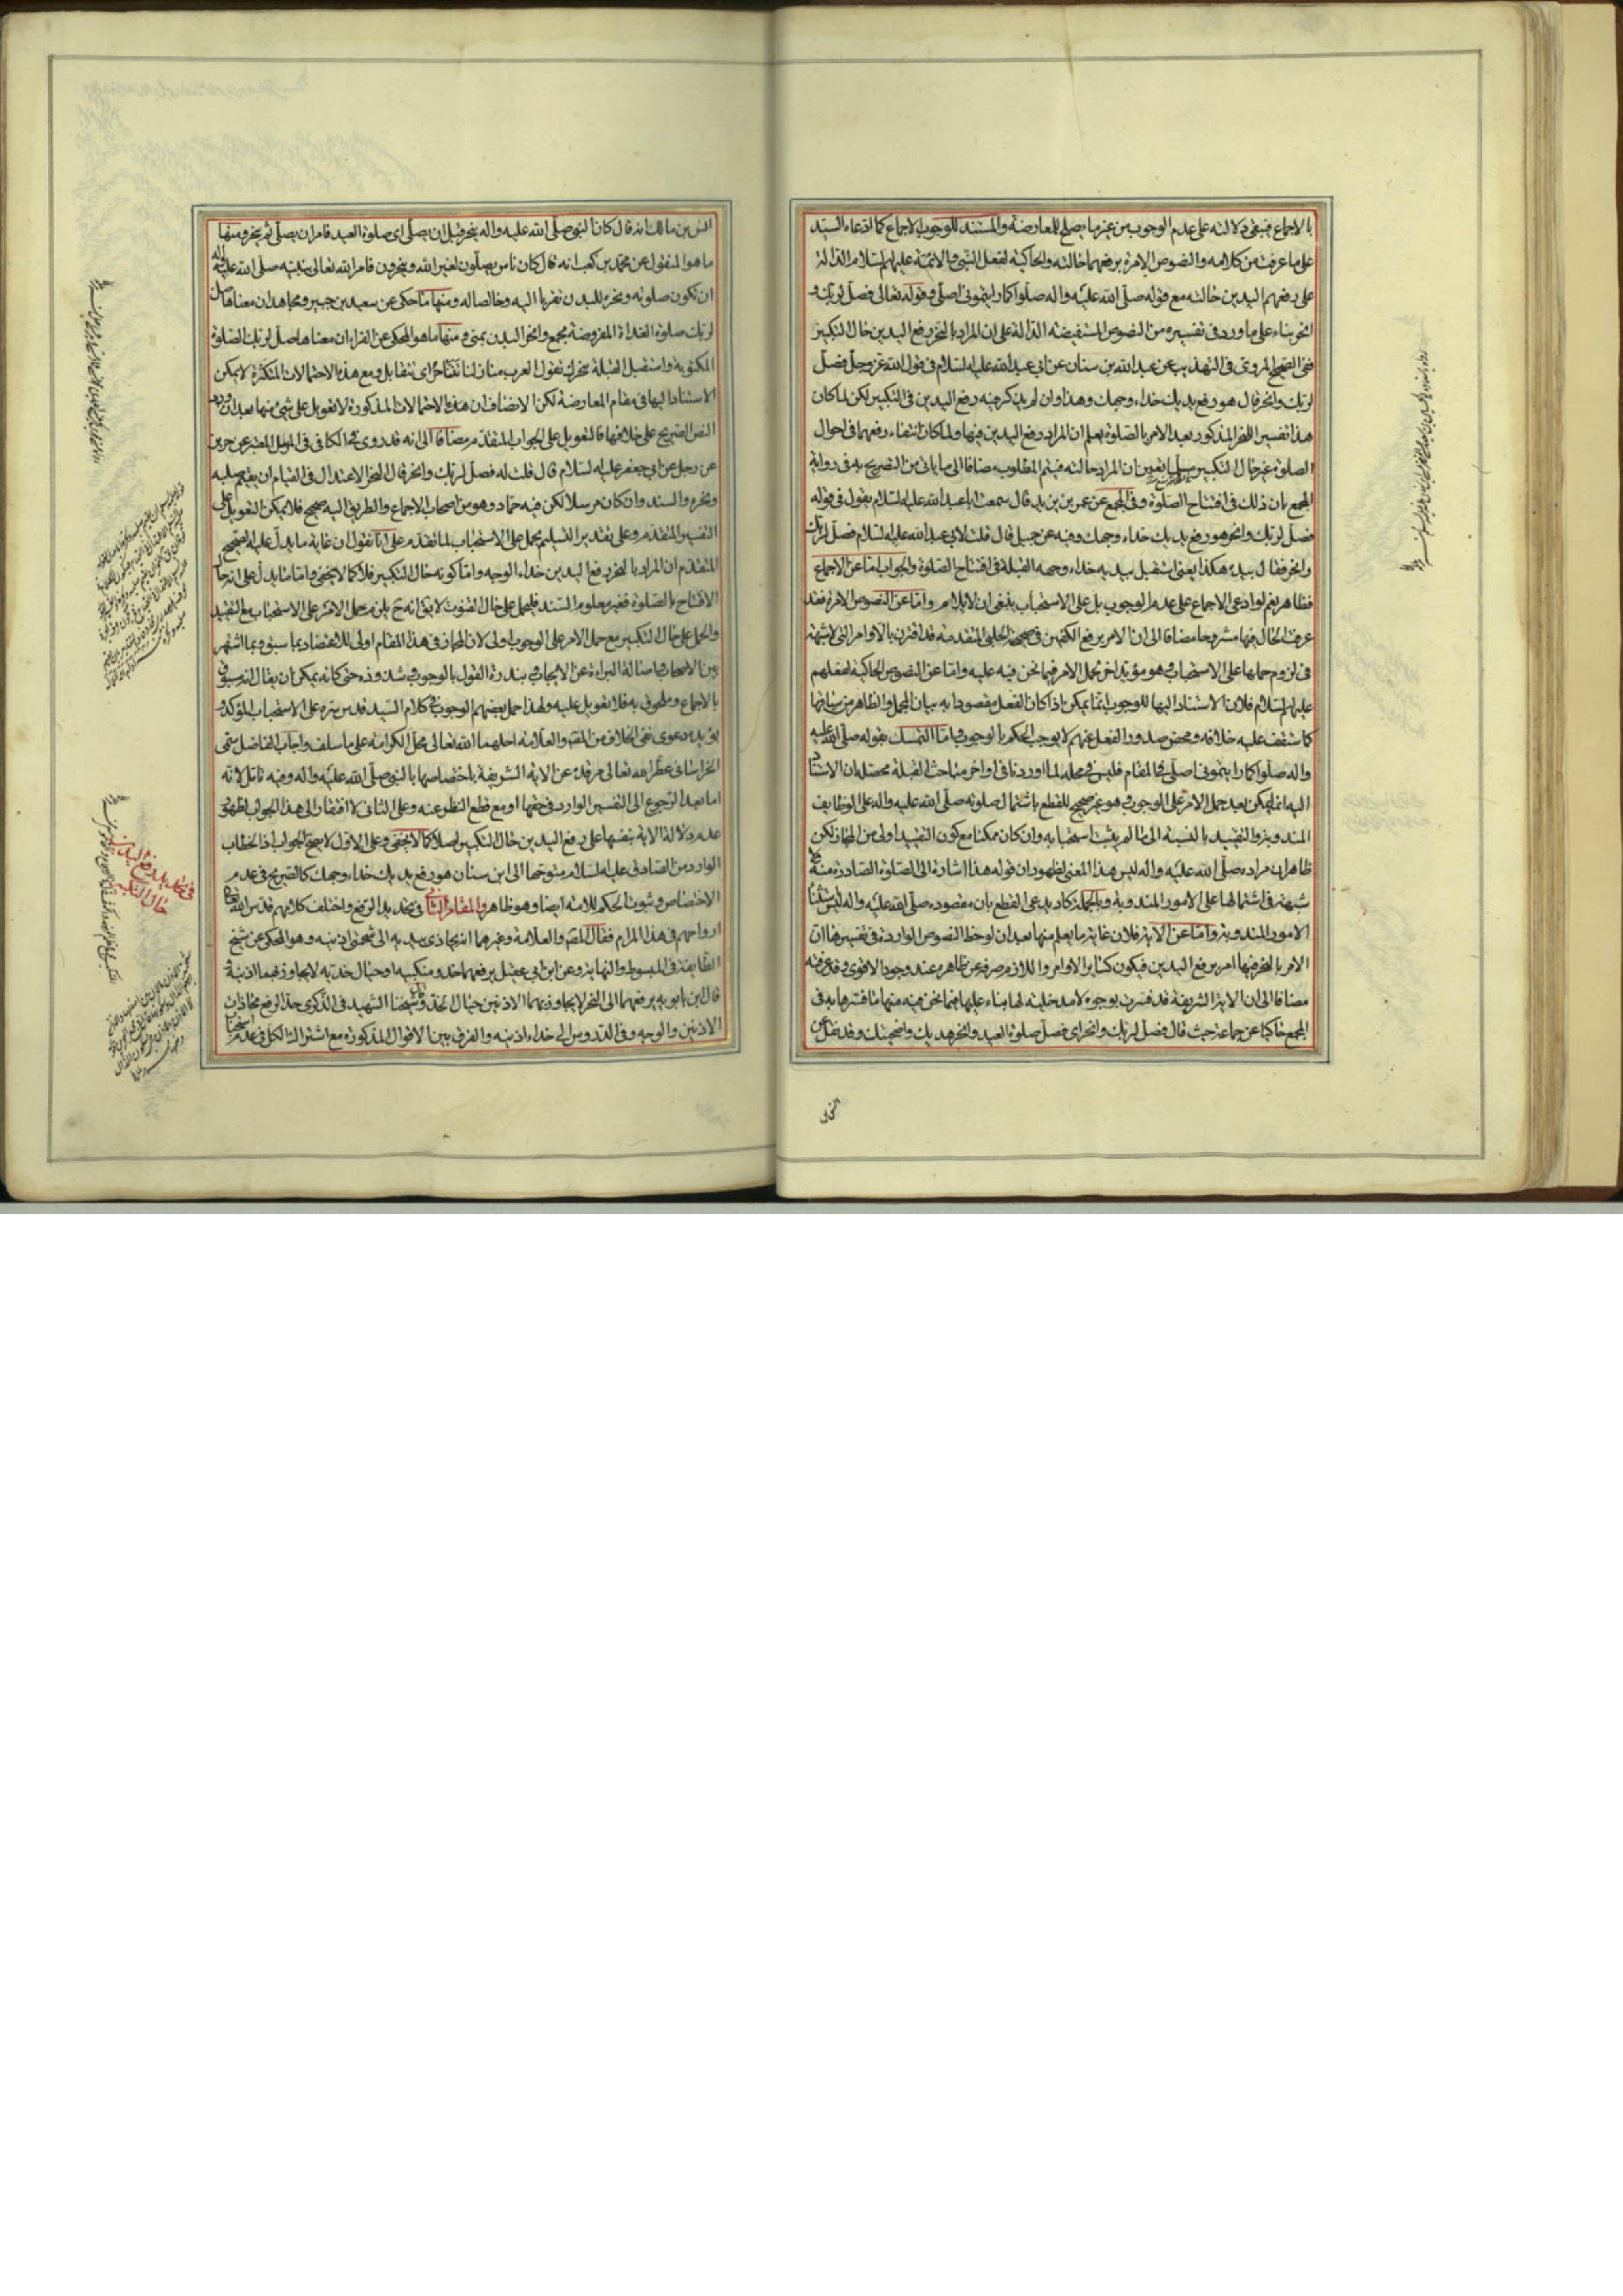 بالاجماع فيبقى دلالته على عدم الوجوب من غير ما يصلح للمعارضة والمستند للوجوب الاجماع كما ادعاه السيد
على ما عرفت من كلامه والنصوص الامرة برفعهما حالته والحاكية لفعل النبي والائمة عليهم السلام الدالة
على رفعهم اليدين حالته مع قوله صلى الله عليه واله صلوا كما رايتموني اصلي وقوله تعالى فصل لربك و
انحر بناء على ما ورد في تفسيره من النصوص المستفيضة الدالة على ان المراد بالنحر رفع اليدين حال التكبير
ففي الصحيح المروي في التهذيب عن عبد الله بن سنان عن ابي عبد الله عليه السلام في قول الله عز وجل فصل
لربك وانحر قال هو رفع يديك حذاء وجهك وهذا وان لم يذكر فيه رفع اليدين في التكبير لكن لما كان
هذا تفسير النحر المذكور بعد الامر بالصلوة يعلم ان المراد رفع اليدين فيها ولما كان انتفاء رفعهما في احوال
الصلوة غير حال التكبير تعين ان المراد حالته فيتم المطلوب مضافا الى ما ياتي من التصريح به في رواية
المجمع بان ذلك في افتتاح الصلوة وفي المجمع عن عمر بن يزيد قال سمعت ابا عبد الله عليه السلام يقول في قوله
فصل لربك وانحر هو رفع يديك حذاء وجهك وفيه عن جميل قال قلت لابي عبد الله عليه السلام فصل لربك
وانحر فقال بيده هكذا يعني استقبل بيديه حذاء وجهه القبلة في افتتاح الصلوة والجواب اما عن الاجماع
فظاهر نعم لو ادعى الاجماع على عدم الوجوب بل على الاستحباب ينبغي ان لا يلام واما عن النصوص الامرة فقد
عرفت الحال فيها مشروحا مضافا الى ان الامر برفع الكفين في صحيحة الحلبي المتقدمة قد اقترن بالاوامر التي لا شبهة
في لزوم حملها على الاستحباب فهو مؤيد اخر لحمل الامر فيما نحن فيه عليه واما عن النصوص الحاكية لفعلهم
عليهم السلام فلان الاستناد اليها للوجوب انما يمكن اذا كان الفعل مقصودا به بيان المجمل والظاهر من سياقها
كما ستقف عليه خلافه ومحض صدور الفعل عنهم لا يوجب الحكم بالوجوب واما التمسك بقوله صلى الله عليه
واله صلوا كما رايتموني اصلي في المقام فليس في محله لما اوردنا في اواخر مباحث القبلة محصله ان الاستناد
اليه انما يمكن بعد حمل الامر على الوجوب وهو غير صحيح للقطع باشتمال صلوته صلى الله عليه واله على الوظايف
المندوبة والتقييد بالنسبة الى ما لم يثبت استحبابه وان كان ممكنا مع كون التقييد اولى من المجاز لكن
ظاهر ان مراده صلى الله عليه واله ليس هذا المعنى لظهور ان قوله هذا اشارة الى الصلوة الصادرة منه ولا
شبهة في اشتمالها على الامور المندوبة وبالجملة كاد يدعى القطع بان مقصوده صلى الله عليه واله ليس استثناء
الامور المندوبة واما عن الاية فلان غاية ما يعلم منها بعد ان لوحظ النصوص الواردة في تفسيرها ان
الامر بالنحر فيها امر برفع اليدين فيكون كساير الاوامر واللازم صرفه عن ظاهره عند وجود الاقوى وقد عرفته
مضافا الى ان الاية الشريفة قد فسرت بوجوه لا مدخلية لها بناء عليها فيما نحن فيه منها ما فسرها به في
المجمع حاكيا عن جماعة حيث قال فصل لربك وانحر اي فصل صلوة العيد وانحر هديك واضحيتك وقد نقل عن
انس بن مالك انه قال كان النبي صلى الله عليه واله ينحر قبل ان يصلي اي صلوة العيد فامر ان يصلي ثم ينحر ومنها
ما هو المنقول عن محمد بن كعب انه قال كان ناس يصلون لغير الله وينحرون فامر الله تعالى نبيه صلى الله عليه واله
ان تكون صلوته ونحره للبدن تقربا اليه وخالصا له ومنها ما حكى عن سعيد بن جبير ومجاهد ان معناه فصل
لربك صلوة الغداة المفروضة بجمع وانحر البدن بمنى ومنها ما هو المحكي عن الفراء ان معناها صل لربك الصلوة
المكتوبة واستقبل القبلة بنحرك تقول العرب منازلنا تتناحر اي تتقابل ومع هذه الاحتمالات المتكثرة لا يمكن
الاستناد اليها في مقام المعارضة لكن الانصاف ان هذه الاحتمالات المذكورة لا تعويل على شيء منها بعد ان ورد
النص الصريح على خلافها فالتعويل على الجواب المتقدم مضافا الى انه قد روى في الكافي في الموثق المعتبر عن حريز
عن رجل عن ابي جعفر عليه السلام قال قلت له فصل لربك وانحر قال النحر الاعتدال في القيام ان يقيم صلبه
ونحره والسند وان كان مرسلا لكن فيه حماد وهو من اصحاب الاجماع والطريق اليه صحيح فلا يمكن التعويل على
التفسير المتقدم وعلى تقدير التسليم يحمل على الاستحباب لما تقدم على انا نقول ان غاية ما يدل عليه الصحيح
المتقدم ان المراد بالنحر رفع اليدين حذاء الوجه واما كونه حال التكبير فلا كما لا يخفى واما ما يدل على انه حال
الافتتاح بالصلوة فغير معلوم السند فليحمل على حال القنوت لا يق انه ح يلزم حمل الامر على الاستحباب مع التقييد
والحمل على حال التكبير مع حمل الامر على الوجوب اولى لان المجاز في هذا المقام اولى للاعتضاد بما سبق وبما اشتهر
بين الاصحاب واصالة البراءة عن الايجاب وبندرة القول بالوجوب وشذوذه حتى كانه يمكن ان يقال انه مسبوق
بالاجماع وملحوق به فلا تعويل عليه ولهذا حمل بعضهم الوجوب في كلام السيد قدس سره على الاستحباب المؤكد و
يؤيده دعوى نفي الخلاف من المص والعلامة احلهما الله تعالى محل الكرامة على ما سلف واجاب الفاضل سمي
الخراساني عطر الله تعالى مرقده عن الاية الشريفة باختصاصها بالنبي صلى الله عليه واله وفيه تامل لانه
اما بعد الرجوع الى التفسير الوارد في حقها او مع قطع النظر عنه وعلى الثاني لا افتقار الى هذا الجواب لظهور
عدم دلالة الاية بنفسها على رفع اليدين حال التكبير اصلا كما لا يخفى وعلى الاول لا يصح الجواب اذ الخطاب
الوارد من الصادق عليه السلام متوجها الى ابن سنان هو رفع يديك حذاء وجهك كالصريح في عدم
الاختصاص وثبوت الحكم للامة ايضا وهو ظاهر والمقام الثاني في تحديد الرفع واختلف كلامهم قدس الله تعالى
ارواحهم في هذا المرام فقال المص والعلامة وغيرهما انه يحاذي بيديه الى شحمتي اذنيه وهو المحكي عن شيخ
الطايفة في المبسوط والنهاية وعن ابن ابي عقيل يرفعهما حذو منكبيه او حيال خديه لا يجاوز بهما اذنيه و
قال ابن بابويه يرفعهما الى النحر لا يجاوز بهما الاذنين حيال الخد وقال شيخنا الشهيد في الذكرى حد الرفع محاذات
الاذنين والوجه وفي الدروس الى حذاء اذنيه والفرق بين الاقوال المذكورة مع اشتراك الكل في عدم
في تحديد رفع اليدين
حال التكبير